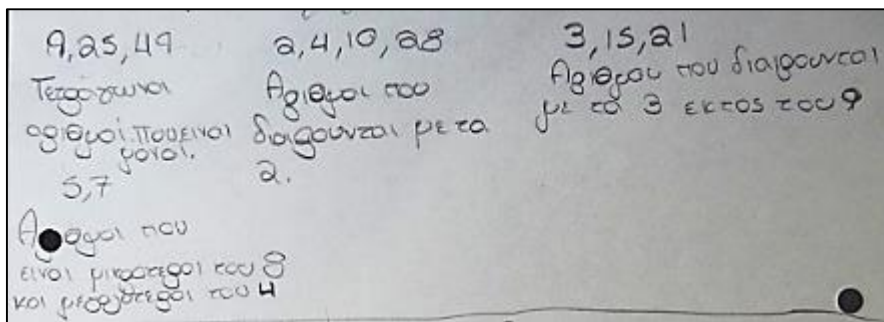 9, 25, 49
Τετράγωνοι
αριθμοί που είναι
μονοί.
5, 7
Αριθμοί που
είναι μικρότεροι του 8
και μεγαλύτεροι του 4
2, 4, 10, 28
Αριθμοί που
διαιρούνται με το
2.
3, 15, 21
Αριθμοί που διαιρούνται
με το 3 εκτός του 9